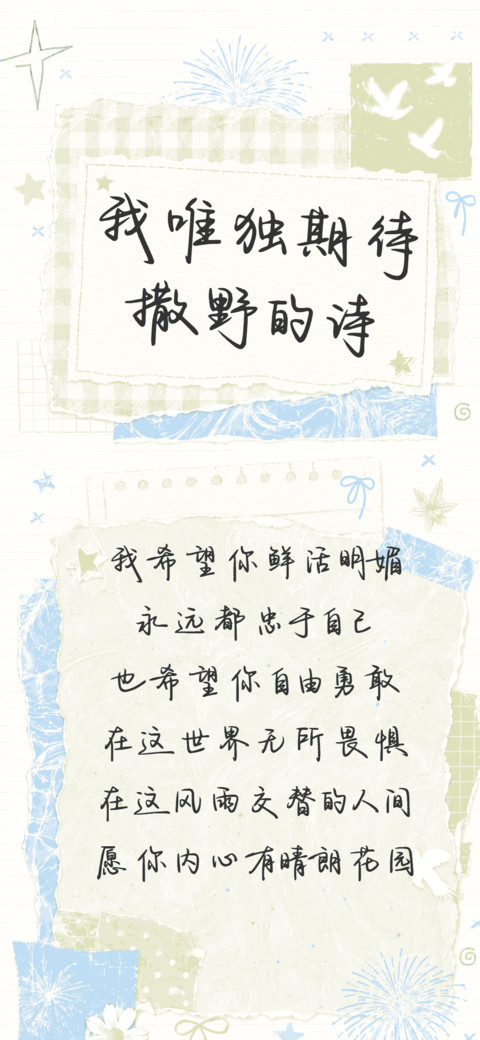 我唯独期待
撒野的诗
我希望你鲜活明媚
永远都忠于自己
也希望你自由勇敢
在这世界无所畏惧
在这风雨交替的人间
愿你内心有晴朗花园